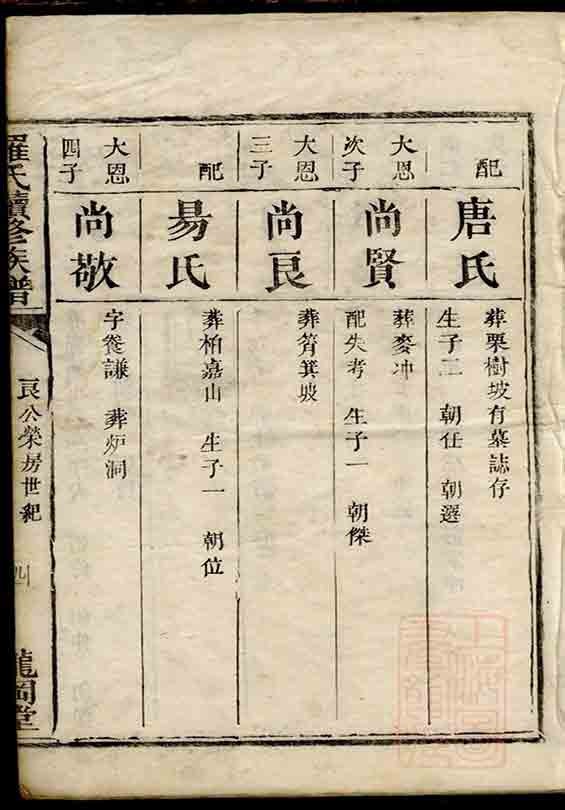 配
唐氏
葬栗樹坡有墓誌存
生子二 朝任 朝選
大恩
次子
尚賢
葬麥冲
配失考 生子一 朝傑
大恩
三子
尚良
葬筲箕坡
配
易氏
葬柏嘉山 生子一 朝位
大恩
四子
尚敬
字養謙 葬炉洞
羅氏續修族譜
良公榮房世紀
龍岡堂